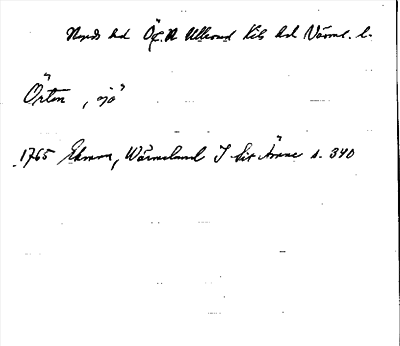 Nyeds hd Ög. A Ullerud Kils hd Värml. l.
Örten, sjö
1765 Ekman, Wärmeland I sit Ämne s. 340